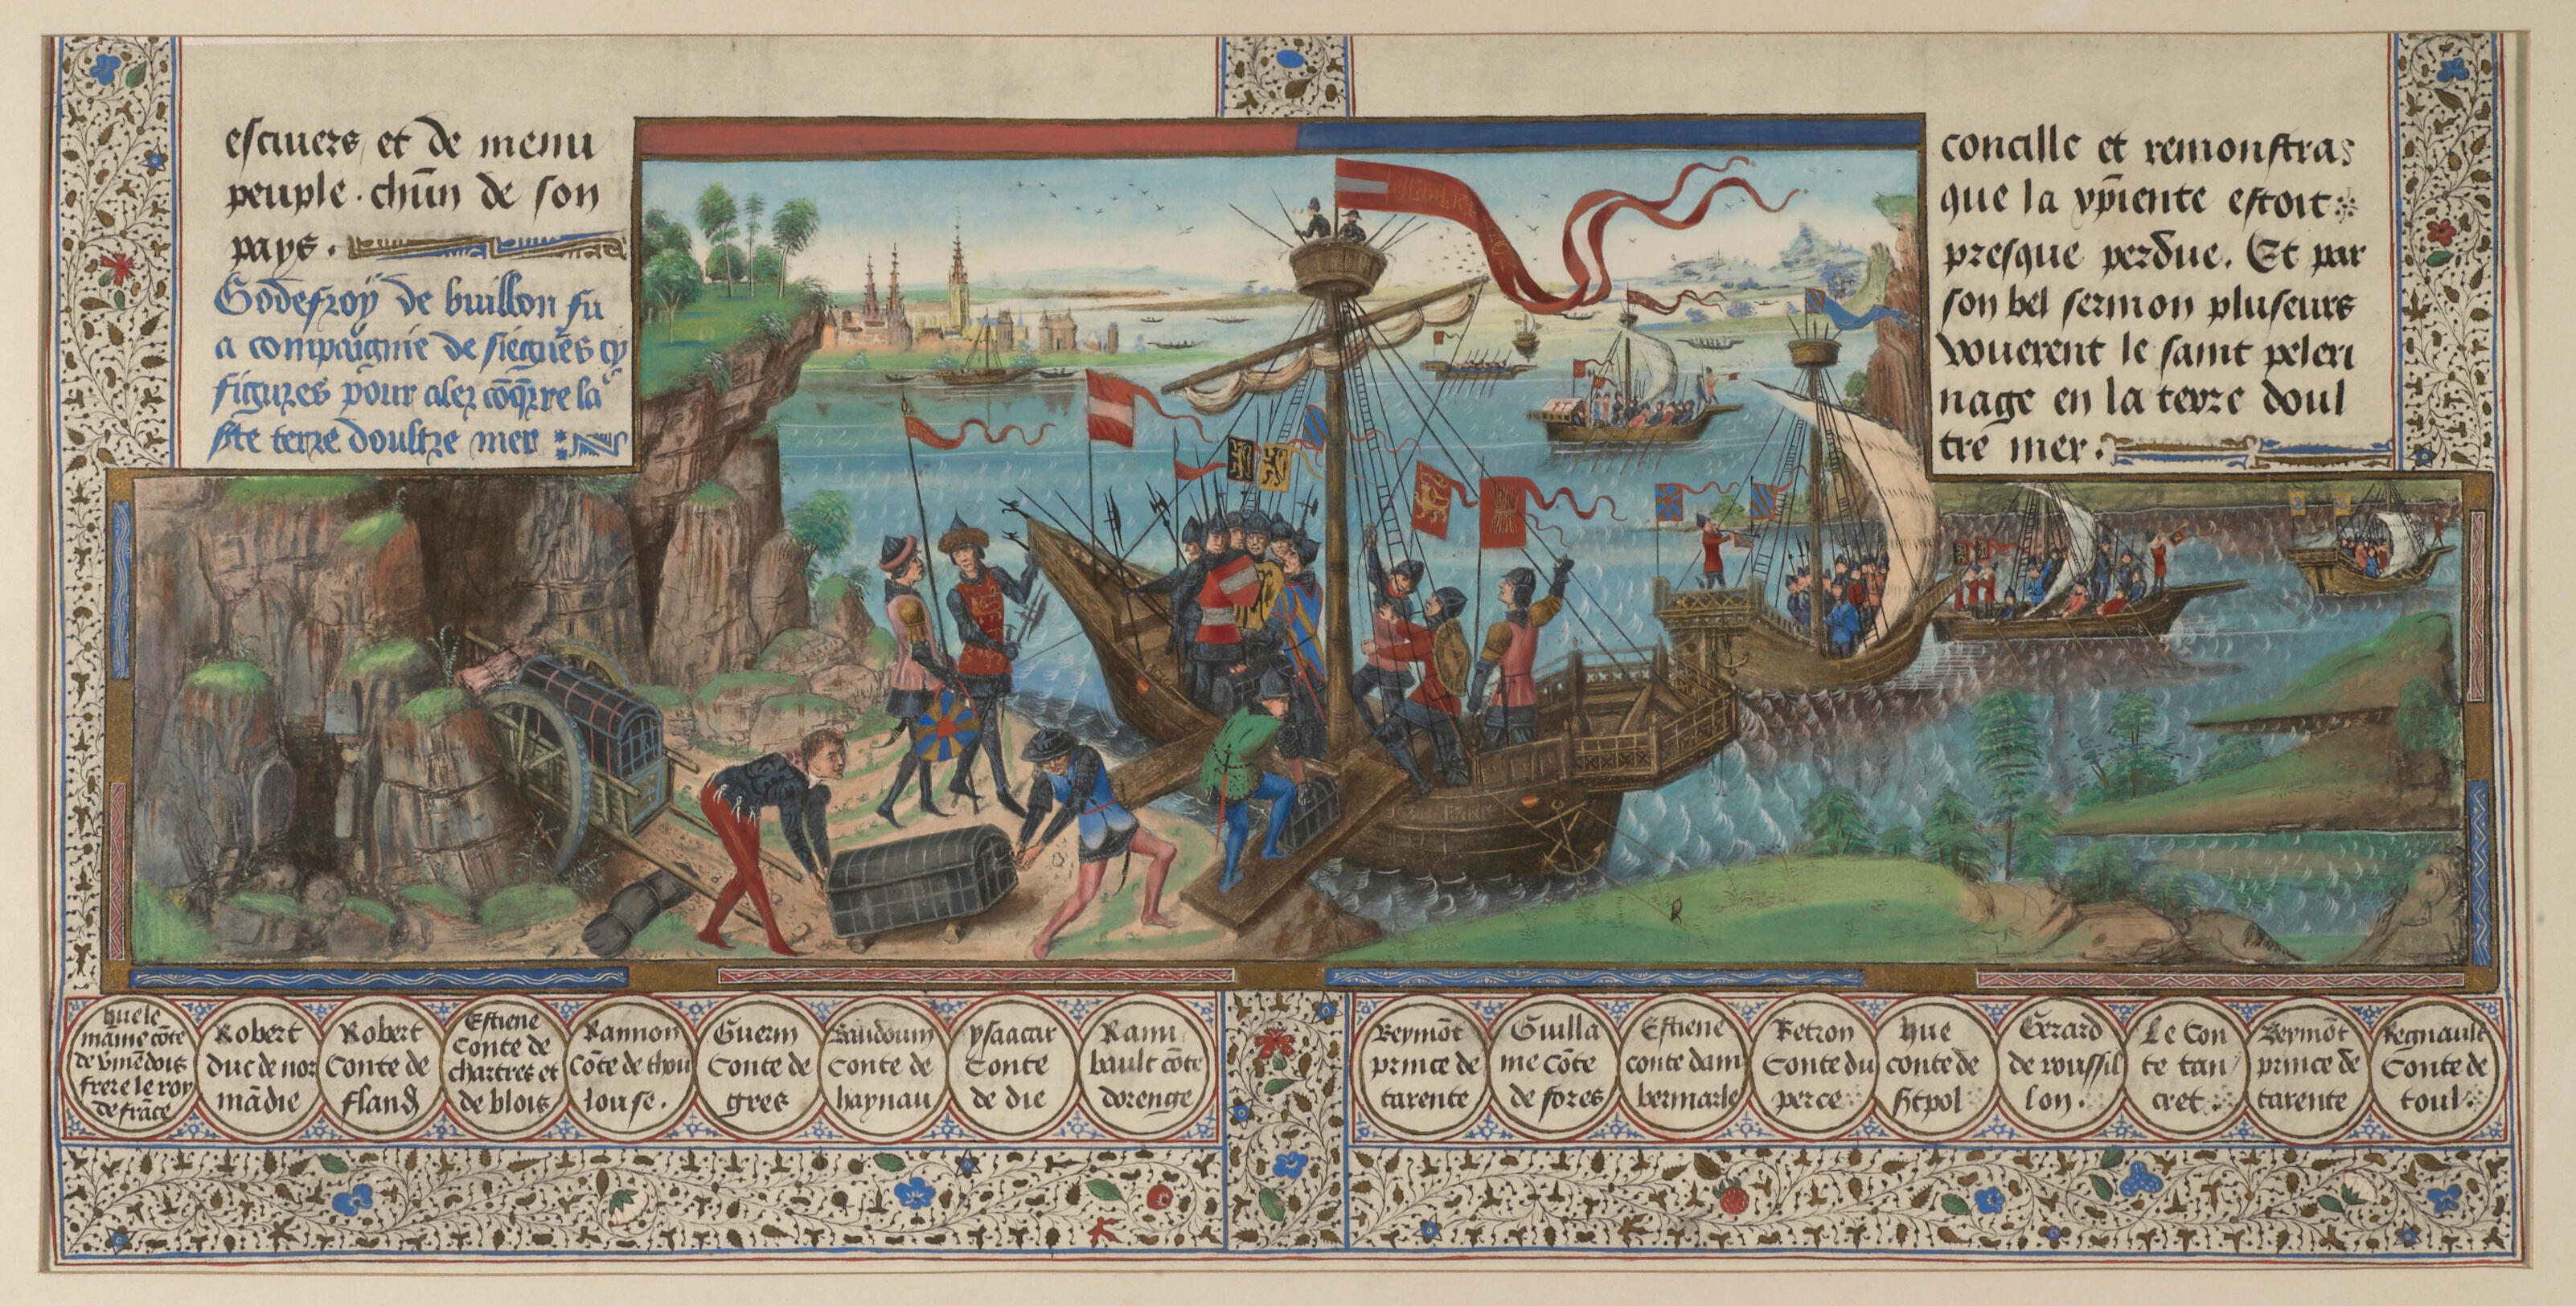 escuiers et de menu
peuple. chūn de son
pays.
Godefroÿ de buillon fu
a compaignie de
figures pour aler cōq̄rre la
ste terre doultre mer
concille et remonstra
que la xp̄iente estoit
presque perdue. Et par
son bel sermon pluseurs
vouerent le saint peleri
nage en la terre doul
tre mer.
hue le
maīne cōte
de vmēdois
frere le roy
de frāce
Robert
duc de nor
mādie
Robert
Conte de
fland
Estiene
Conte de
chartres et
de blois
Raimon
Cōte de thou
louse.
Guerin
Conte de
gres
Baudouin
Conte de
haynau
ysaacar
Conte
de die
Raim
bault cōte
dorenge
Beymōt
prince de
tarente
Guilla
me Cōte
de fores
Estiene
conte dam
bermarle
Retron
Conte du
perce
hue
conte de
st pol
Gerard
de roussil
lon.
Le Con
te tan
cret
Beymōt
prince de
tarente
Regnault
Conte de
toul